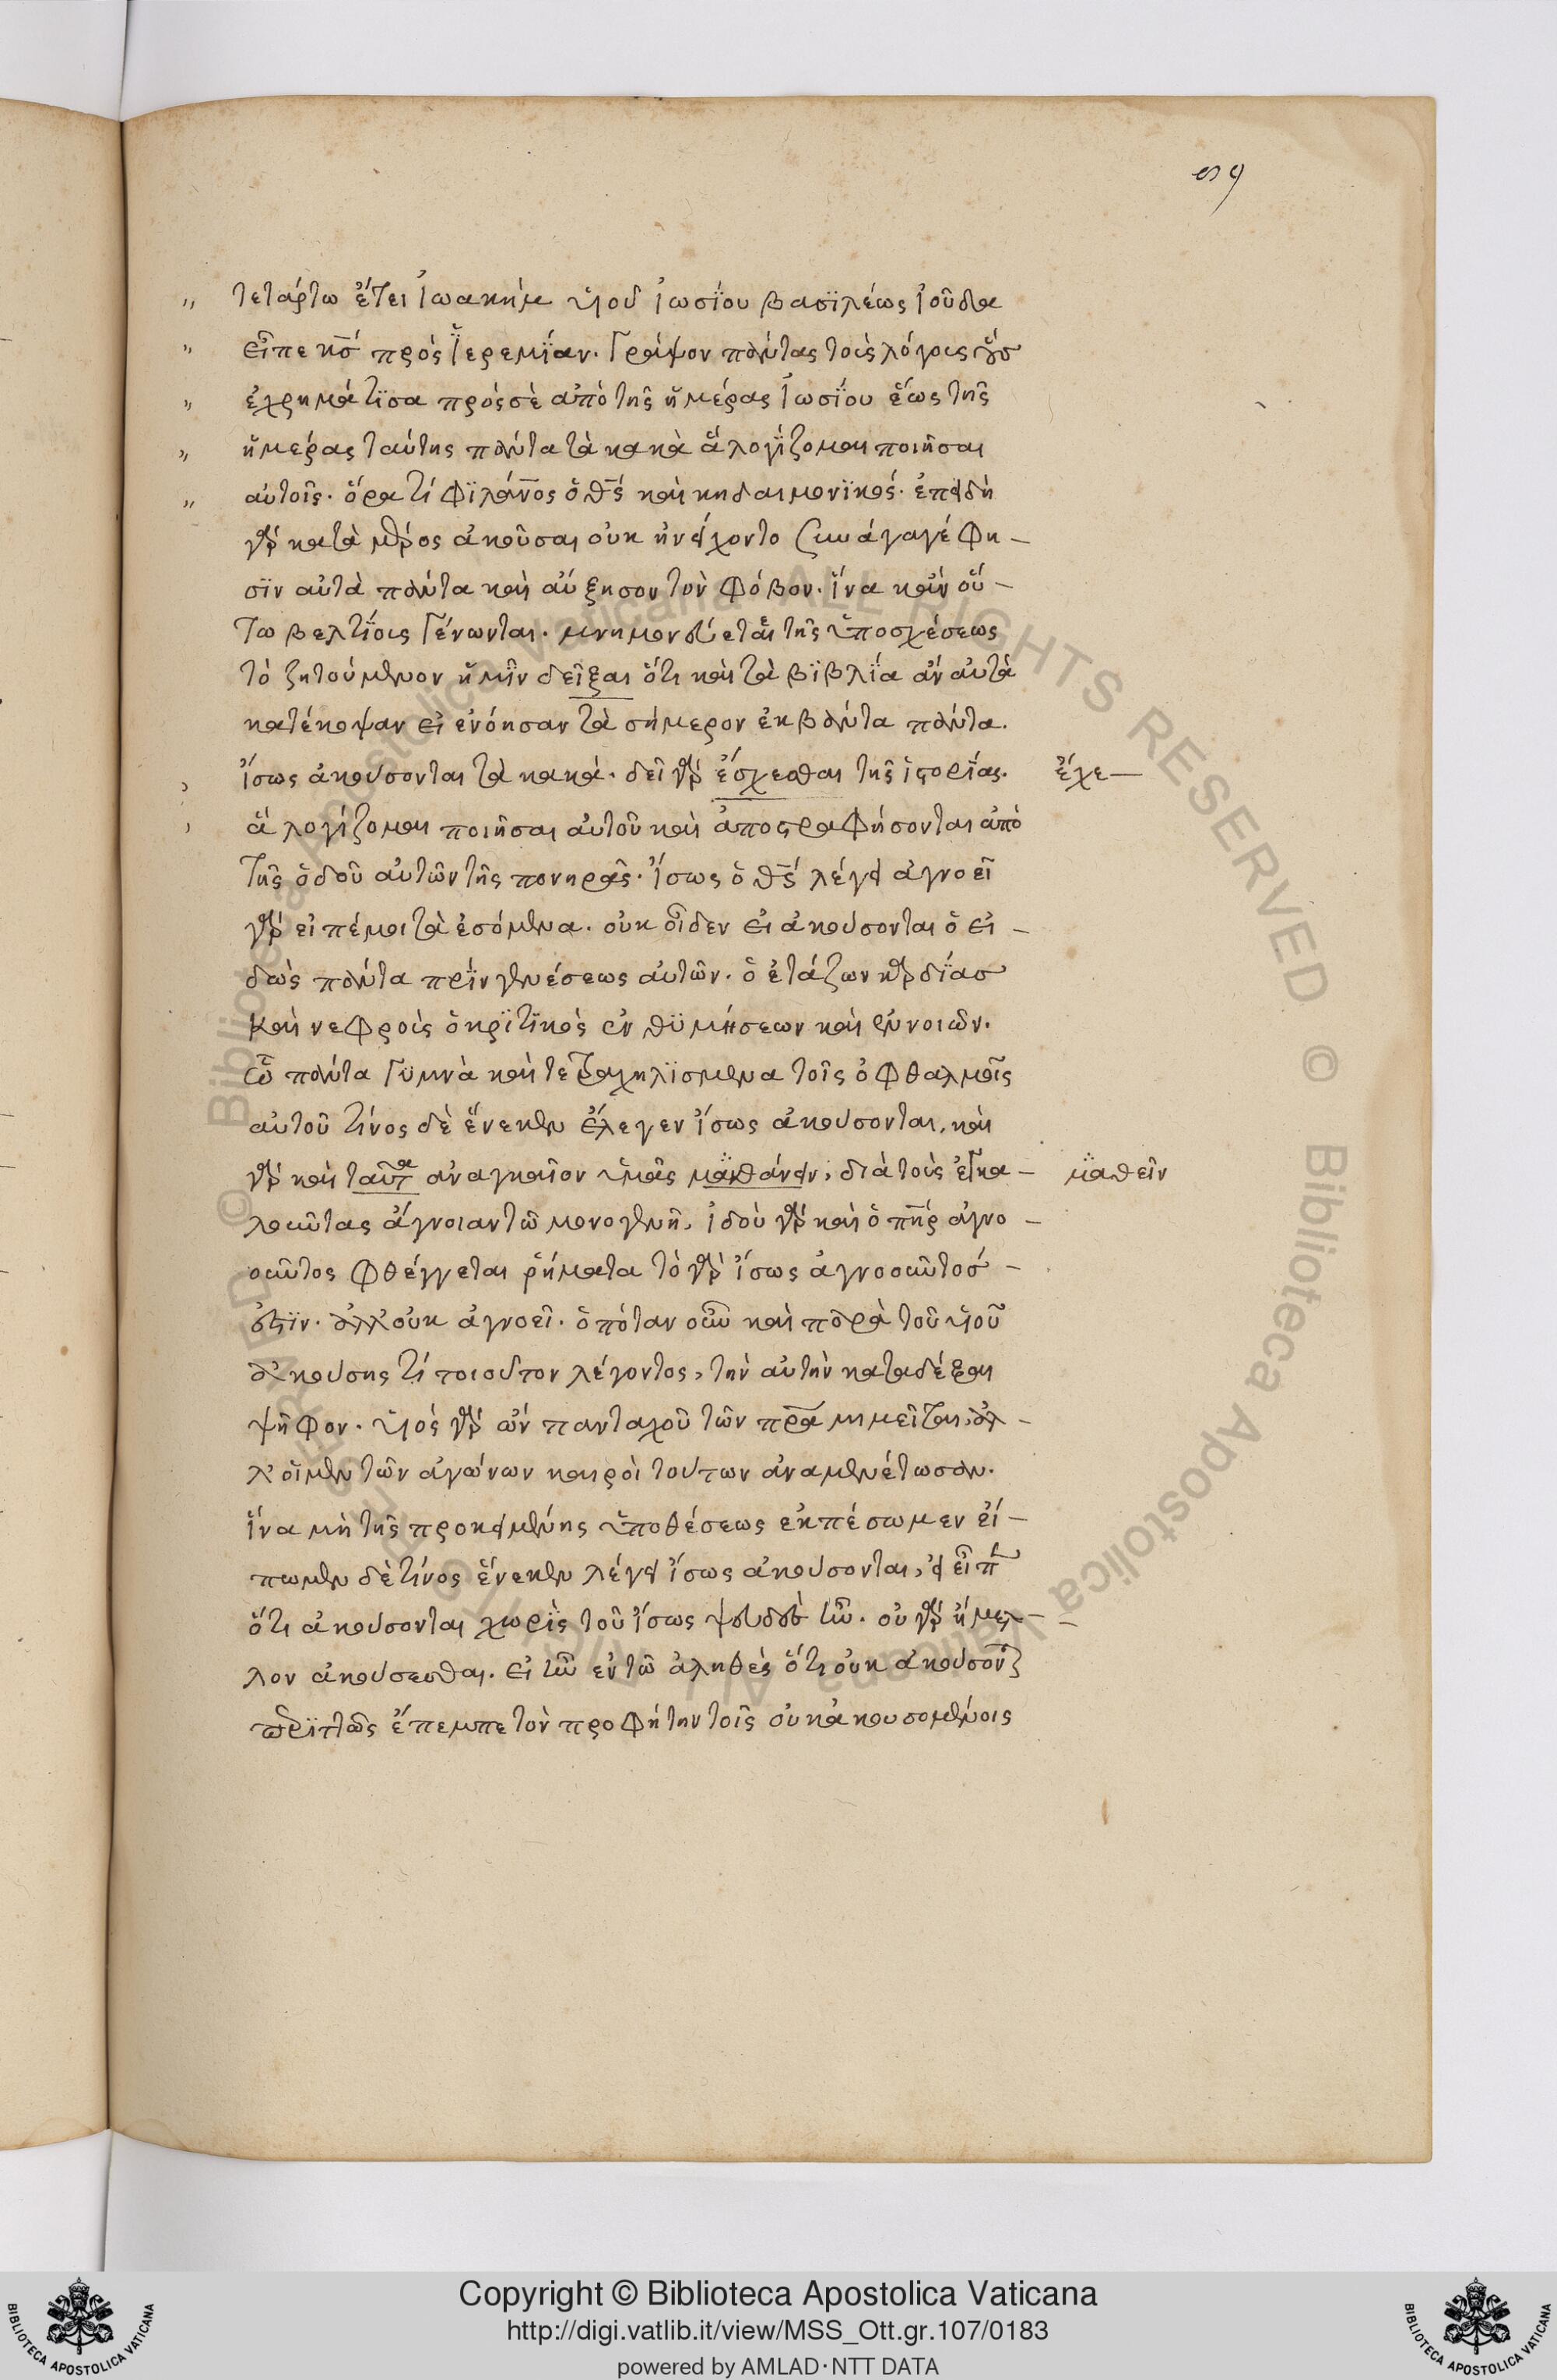 τετάρτω ἔτει ἰωακήμ υἱοῦ ἰωσΐου βασϊλέως ἰοῦδα
εἶπε κ̅σ̅ πρός ἱερεμΐαν. γράψον πάντας τοὺς λόγους οὕσ
ἐχρημάτϊσα πρόςσὲ ἀπὸ τῆς ἡμέρας ἰωσΐου ἕως τῆς
ἡμέρας ταύτης πάντα τὰ κακὰ ἅ λογΐζομαι ποιῆσαι
αὐτοῖς. ὅρα τί φϊλάν̅ο̅ς ὁ θ̅ς̅ καὶ κηδαιμονϊκός. ἐπειδὴ
γὰρ κατὰ μέρος ἀκοῦσαι οὐκ ἠνείχοντο συνάγαγέ φη –
σϊν αὐτὰ πάντα καὶ αὔξησον τὸν φόβον. ἵνα κἄν οὕ –
τω βελτΐους γένωνται. μνημονεύεται τῆς ὑποσχέσεως
τὸ ζητούμενον ἡμῖν δεῖξαι ὅτι καὶ τὰ βϊβλΐα ἀν αὐτὰ
κατέκοψαν εἰ ἐνόησαν τὰ σήμερον ἐκβάντα πάντα.
ἴσως ἀκούσονται τὰ κακὰ. δεῖ γὰρ ἔσχεσθαι τῆς ἱστορΐας. ἔχε —
ἅ λογΐζομαι ποιῆσαι αὐτοῦ καὶ ἀποστραφήσονται ἀπὸ
τῆς ὁδοῦ αὐτῶν τῆς πονηρᾶς. ἴσως ὁ θ̅ς̅ λέγει ἀγνοεῖ
γάρ εἰπέ μοι τὰ ἐσόμενα. οὐκ οἶδεν εἰ ἀκούσονται ὁ εἰ –
δὼς πάντα πρΐν γενέσεως αὐτῶν. ὁ ἐτάζων καρδΐασ
καὶ νεφροὺς ὁ κρϊτϊκὸς ἐνθϋμήσεων καὶ ἐννοιῶν.
ὧ πάντα γϋμνὰ καὶ τετραχηλϊσμενα τοῖς ὀφθαλμοῖς
αὐτοῦ τίνος δὲ ἕνεκεν ἔλεγεν ἴσως ἀκούσονται, καὶ
γὰρ καὶ ταῦτα ἀναγκαῖον ὑμᾶς μανθάνειν, διὰ τοὺς ἐγκα – μαθεῖν
λοῦντας ἄγνοιαν τῶ μονογενῆ. ἰδοὺ γὰρ καὶ ὁ π̅η̅ρ ἀγνο –
οῦντος φθέγγεται ῥήματα τὸ γὰρ ἴσως ἀγνοοῦντοσ –
ἐστΐν. ἀλλ' οὐκ ἀγνοεῖ. ὁπόταν οὖν καὶ παρὰ τοῦ υἱοῦ
ἀκούσης τί τοιοῦτον λέγοντος, τὴν αὐτὴν καταδέξαι
ψῆφον. υἱὸς γὰρ ὤν πανταχοῦ τῶν π̅ρ̅α μημεῖται, ἀλ –
λ' οἱ μὲν τῶν ἀγώνων καιροὶ τούτων ἀναμενέτωσαν.
ἵνα μὴ τῆς προκειμένης ὑποθέσεως ἐκπέσωμεν εἴ –
πωμεν δὲ τίνος ἕνεκεν λέγει ἴσως ἀκούσονται, εἰ εἶπε
ὅτι ἀκούσονται χωρὶς τοῦ ἴσως ψευδὲς ἦν. οὐ γὰρ ἤμελ –
λον ἀκούσεσθαι. εἰ ἦν ἐν τῶ ἀληθὲς ὅτι οὐκ ἀκούσονται
περϊττῶς ἔπεμπε τὸν προφήτην τοῖς οὐκ ἀκουσομένοις
Copyright © Biblioteca Apostolica Vaticana
http://digi.vatlib.it/view/MSS_Ott.gr.107/0183
powered by AMLAD·NTT DATA